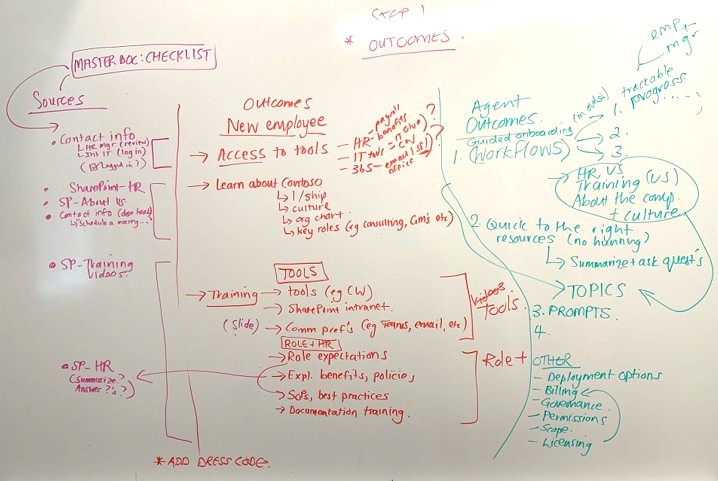 STEP 1
* OUTCOMES
MASTER DOC: CHECKLIST
Sources
• Contact info
↳ HR mgr (review)
↳ Int IT (log in)
Logged in?)
• SharePoint-HR
• SP-About Us
• Contact info (dept head)
↳ Schedule a meeting...
• SP-Training
Videos.
• SP-HR
(Summarize?
Answer ?'s?)
Outcomes
New employee
→ Access to tools
→ HR - payroll
- benefits
→ IT tools
- CW
→ 365 - email (lists)
office
?
?
→ Learn about Contoso
↳ l/ship
↳ culture
↳ org chart
↳ key roles (eg consulting, GM's etc)
TOOLS
→ Training → tools (eg CW)
→ SharePoint intranet
(Slide) → Comm pref's (eg Teams, email, etc)
Videos
Tools
ROLE + HR
→ Role expectations
→ Expl. benefits, policies
→ SoPs, best practices
→ Documentation training.
Role +
* ADD DRESS CODE.
emp +
mgr
Agent
Outcomes.
Guided onboarding
1. (WORKFLOWS)
(modes)
1. trackable
progress
2.
3.
→ HR, US
Training (US)
About the comp.
+ culture
2. Quick to the right
resources (no hunting)
↳ Summarize + ask quest's
→ TOPICS
3. PROMPTS.
4.
OTHER
- Deployment options
- Billing
- Governance.
- Permissions
- Scope.
- Licensing